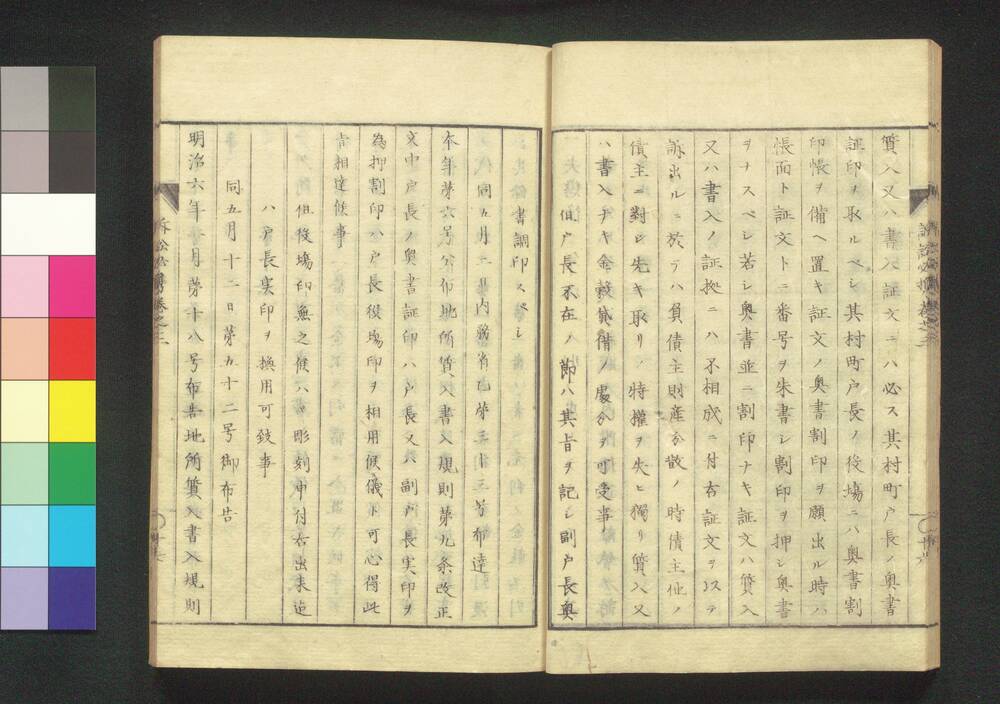 質入又ハ書入ノ証文ニハ必ス其村町戸長ノ奥書
証印ヲ取ルベシ其村町戸長ノ役場ニハ奥書割
印帳ヲ備ヘ置キ証文ノ奥書割印ヲ願出ル時ハ
帳面ト証文トニ番号ヲ朱書シ割印ヲ押シ奥書
ヲナスベシ若シ奥書並ニ割印ナキ証文ハ質入
又ハ書入ノ証拠ニハ不相成ニ付右証文ヲ以テ
訴出ルニ於テハ負債主則産分散ノ時債主他ノ
債主ニ對シ先キ取リノ特權ヲ失ヒ獨リ質入又
ハ書入ナキ金穀貸借ノ處分ヲ可受事
但戸長不在ノ節ハ其旨ヲ記シ副戸長奥
書調印スベシ
同五月二日内務省乙第三十三号布達
本年第六号公布地所質入書入規則第九条改正
文中戸長ノ奥書証印ハ戸長又ハ副戸長実印ヲ
為押割印ハ戸長役場印ヲ相用候儀ト可心得此
旨相達候事
但役場印無之候ハヾ彫刻申付右出来迄
ハ戸長実印ヲ換用可致事
同五月十二日第五十二号御布告
明治六年一月第十八号布告地所質入書入規則
訴訟必携卷之三